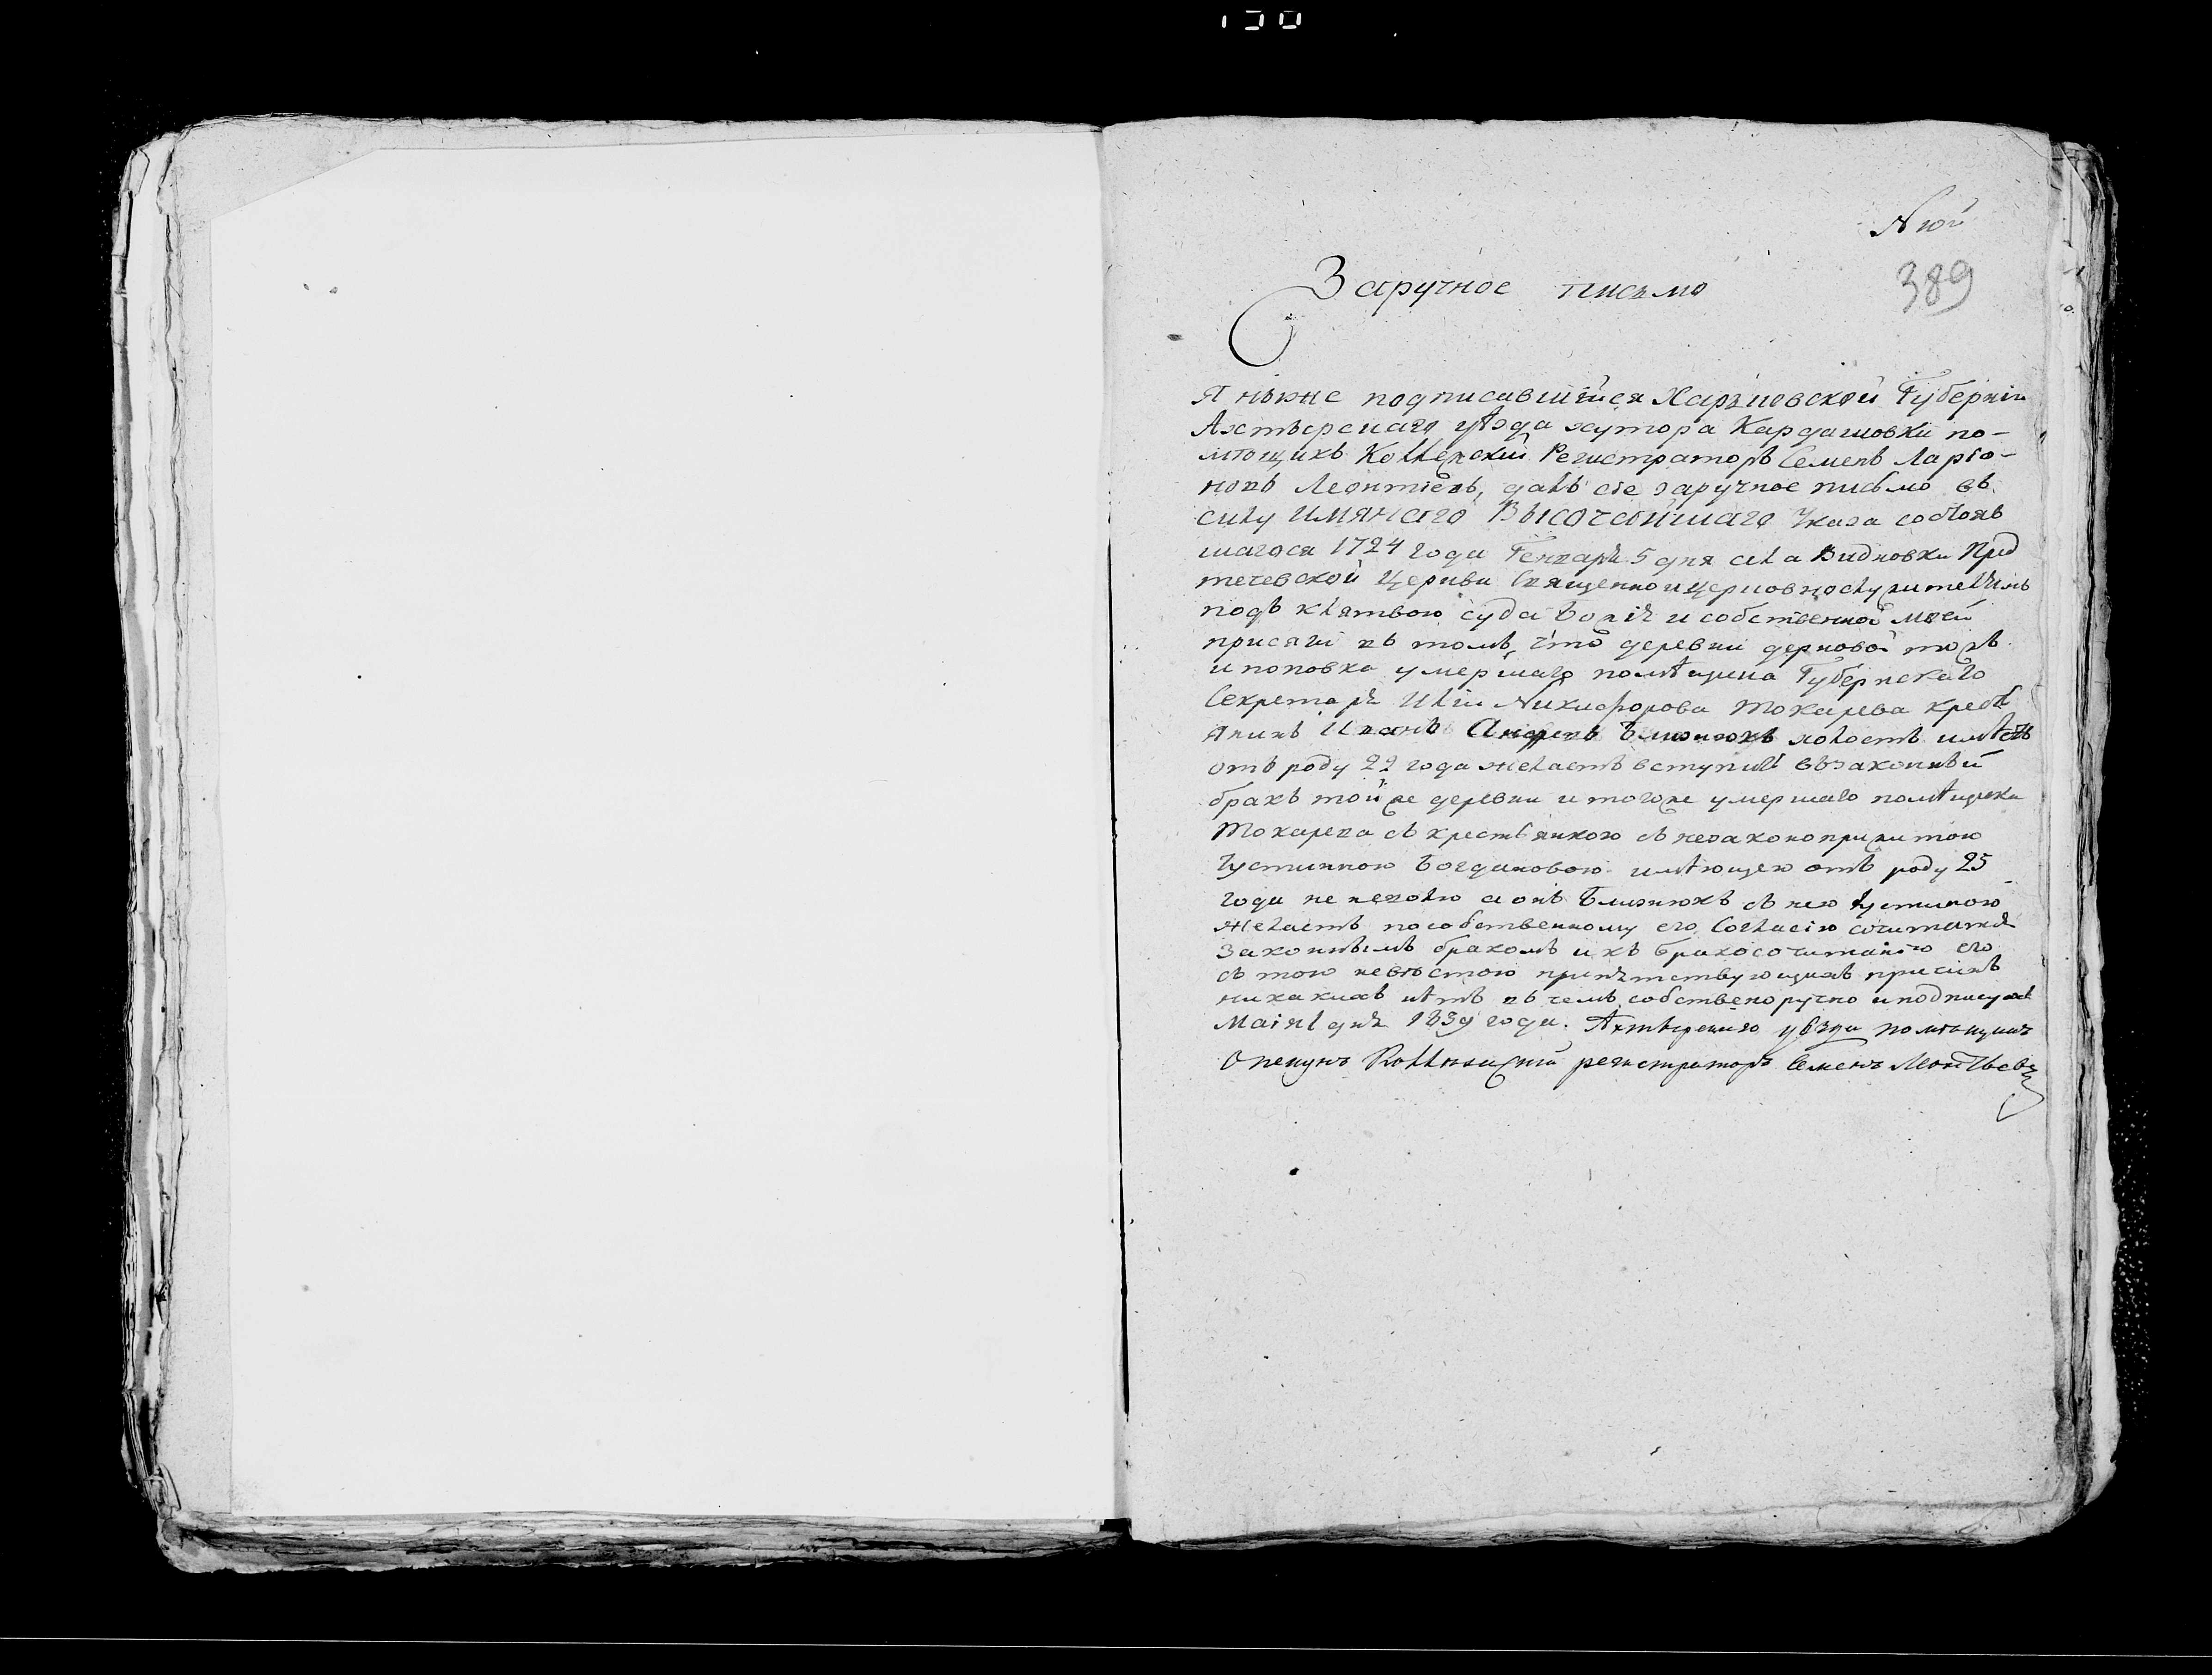 N 10й
389
Заручное письмо
Я ниже подписавшійся Харьковской Губерніи
Ахтырскаго уѣзда хутора Кардашовки по-
мѣщикъ Коллежскій Регистраторъ Семенъ Ларіо-
новъ Леонтіевъ, далъ сіе заручное письмо въ
силу ИМЯНАГО ВЫСОЧАЙШАГО Указа состояв
шагося 1724 года Генваря 5 дня села Видновки Пред
течевской Церкви Священно и церковнослужителямъ
подъ клятвою суда Божія и собственной моей
присяги въ томъ, что деревни дерновой тожъ
и поповка умершаго помѣщика Губернскаго
Секретаря Иліи Никифорова Токарева кресть
янинъ Иванъ Близнюкъ холостъ имѣетъ
отъ роду 22 года желаетъ вступить въ законный
бракъ той же деревни и того же умершаго помѣщика
Токарева съ крестьянкою съ незаконоприжитою
Іустинною Богдановою имѣющею отъ роду 25
года не неволю а онъ Близнюкъ съ нею Іустиною
желаетъ по собственному его Согласію сочитатся
Законнымъ бракомъ и къ бракосочитанію его
съ тою невѣстою препятствующихъ присинъ
никакихъ нѣтъ въ чемъ собственоручно и подписуюсь
Маія 1 дня 1839 года. Ахтырскаго уѣзда помѣщикъ
Опекунъ Коллежскій регистраторъ Семенъ Леонтьевъ